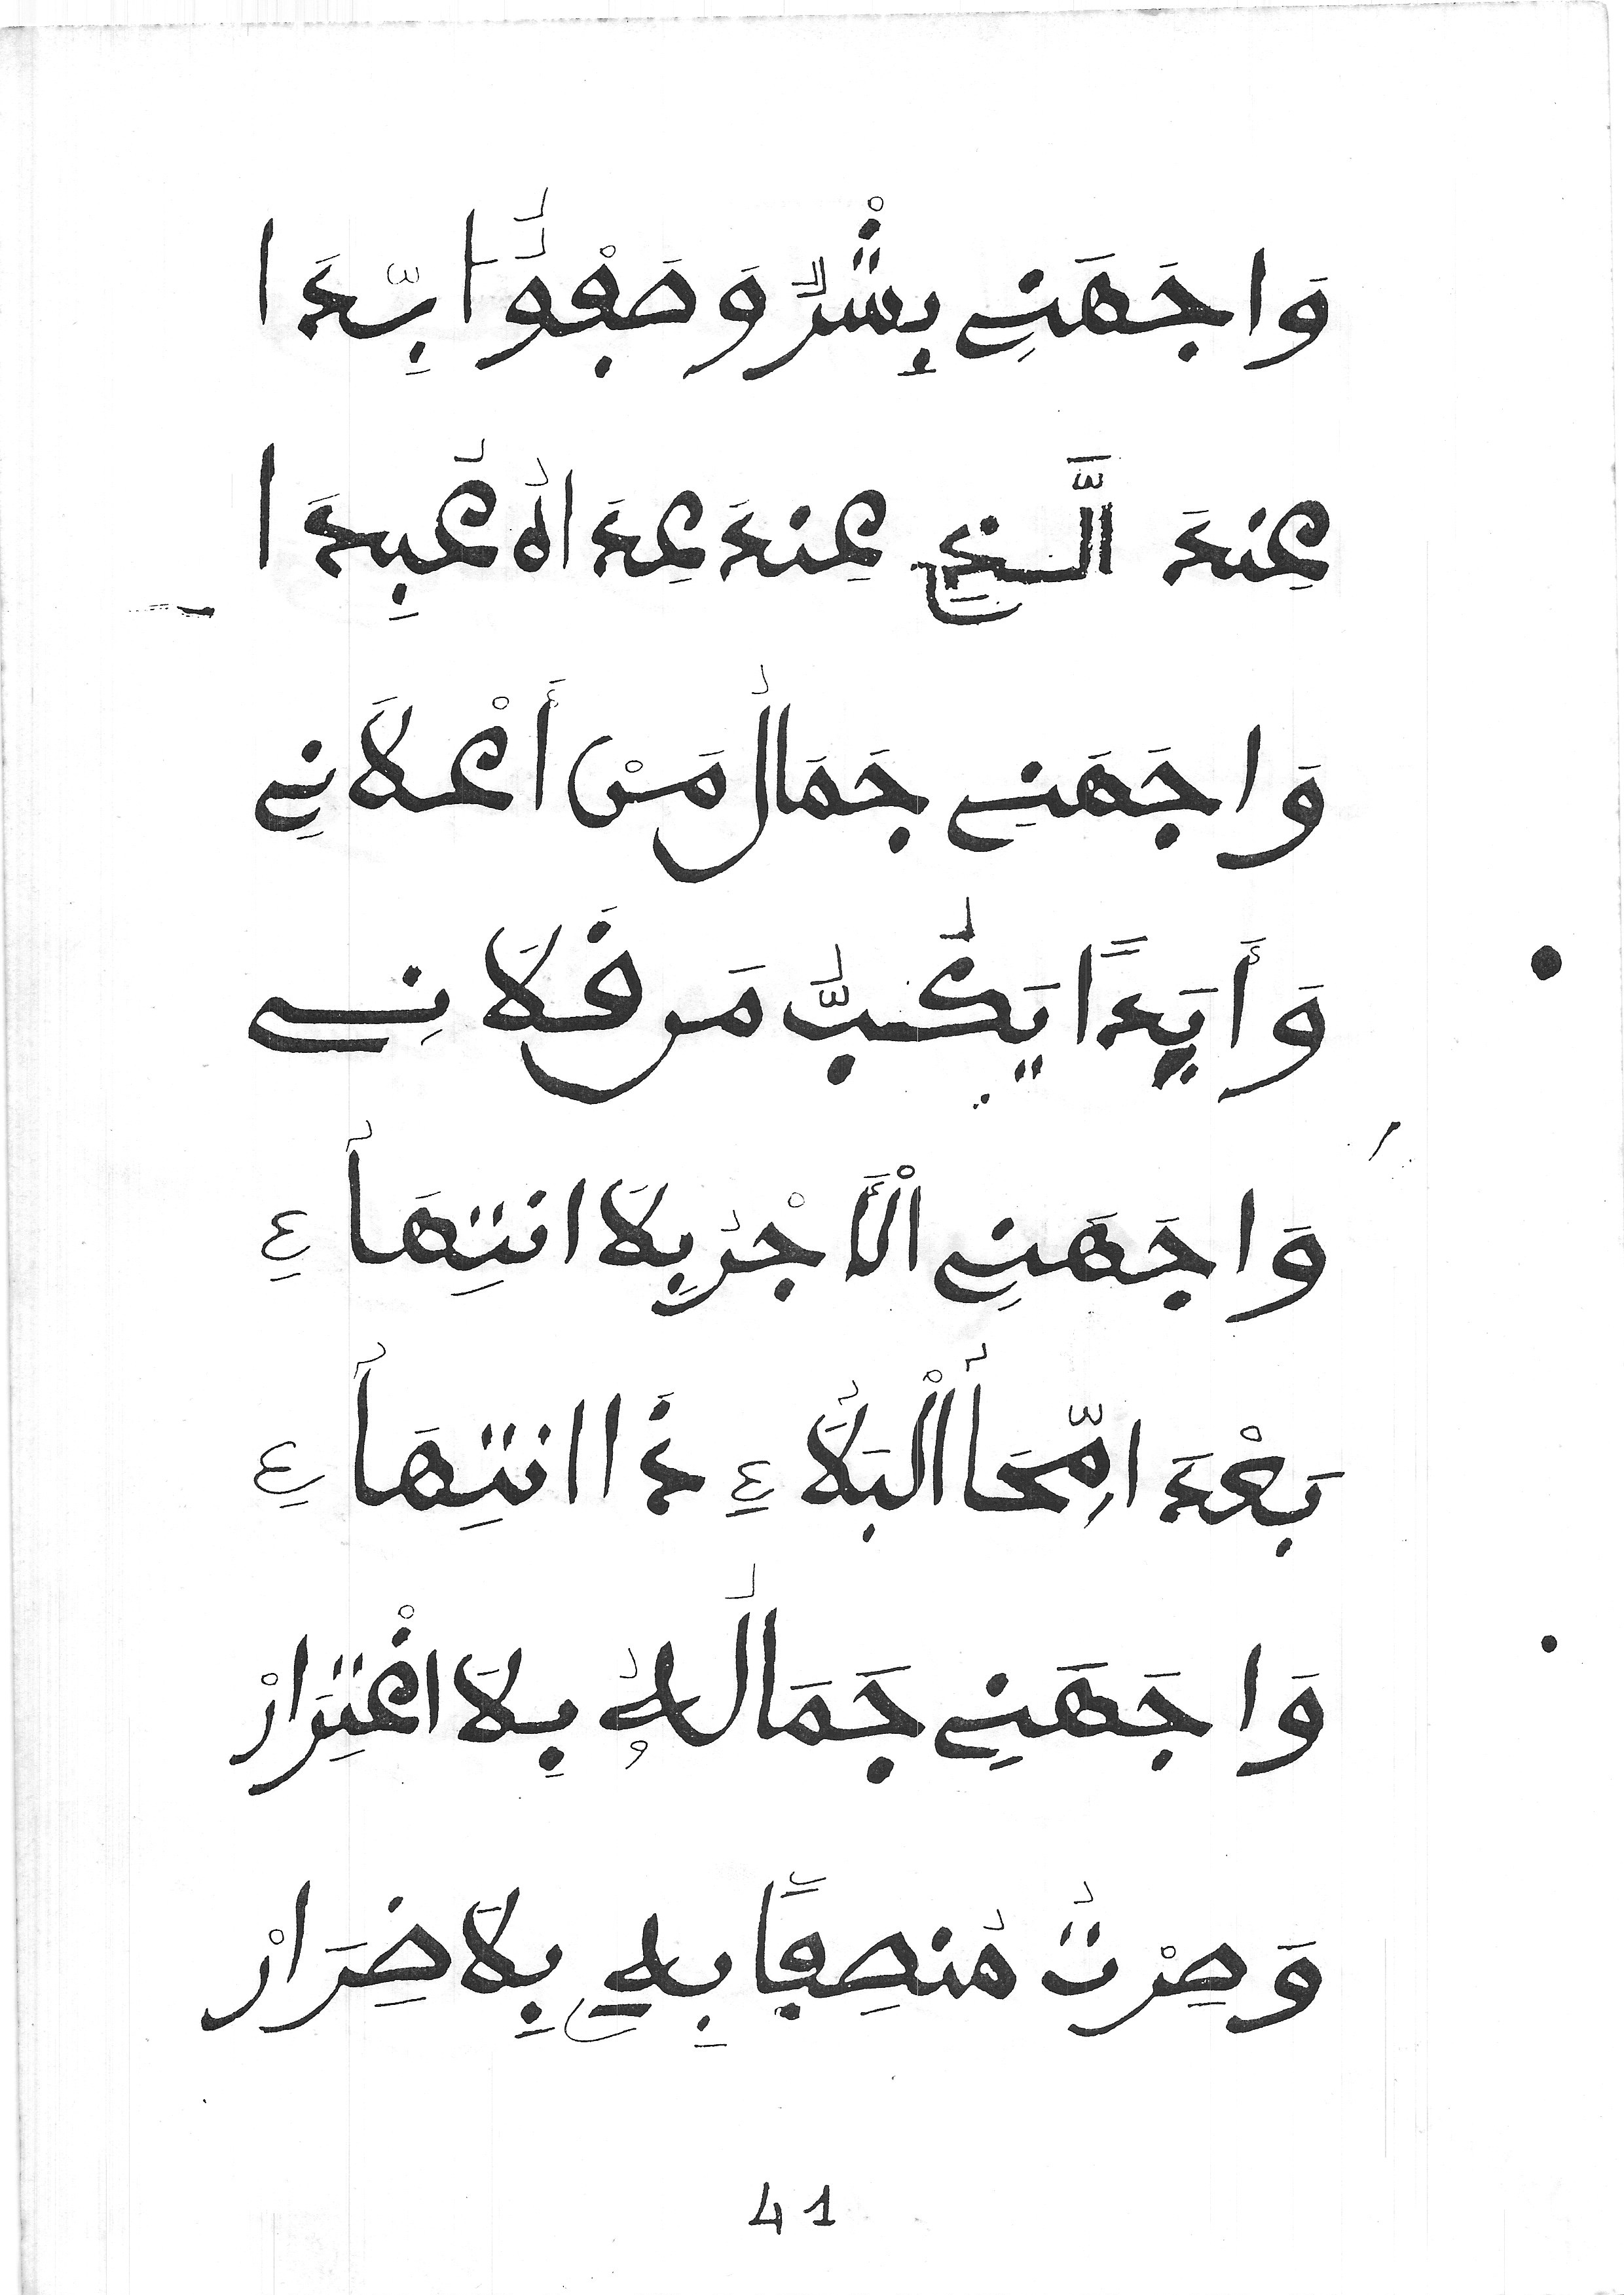 وَاجَهَنِي بِشْرٌ وَصَفْوٌ أُبِّدَا
عِندَ الَّذِي عِندَ عِدَاهُ عُبِدَا
وَاجَهَنِي جَمَالُ مَنْ أَعْلَانِي
وَأَبَدًا يَكُبُّ مَن قَلَانِي
وَاجَهَنِي الْأَجْرُ بِلَا انتِهَاءِ
بَعْدَ امِّحَا الْبَلَاءِ ذَا انتِهَاءِ
وَاجَهَنِي جَمَالُهُ بِلَا اغْتِرَارْ
وَصِرْتُ مُنصِفًا بِهِ بِلَا ضِرَارْ
41